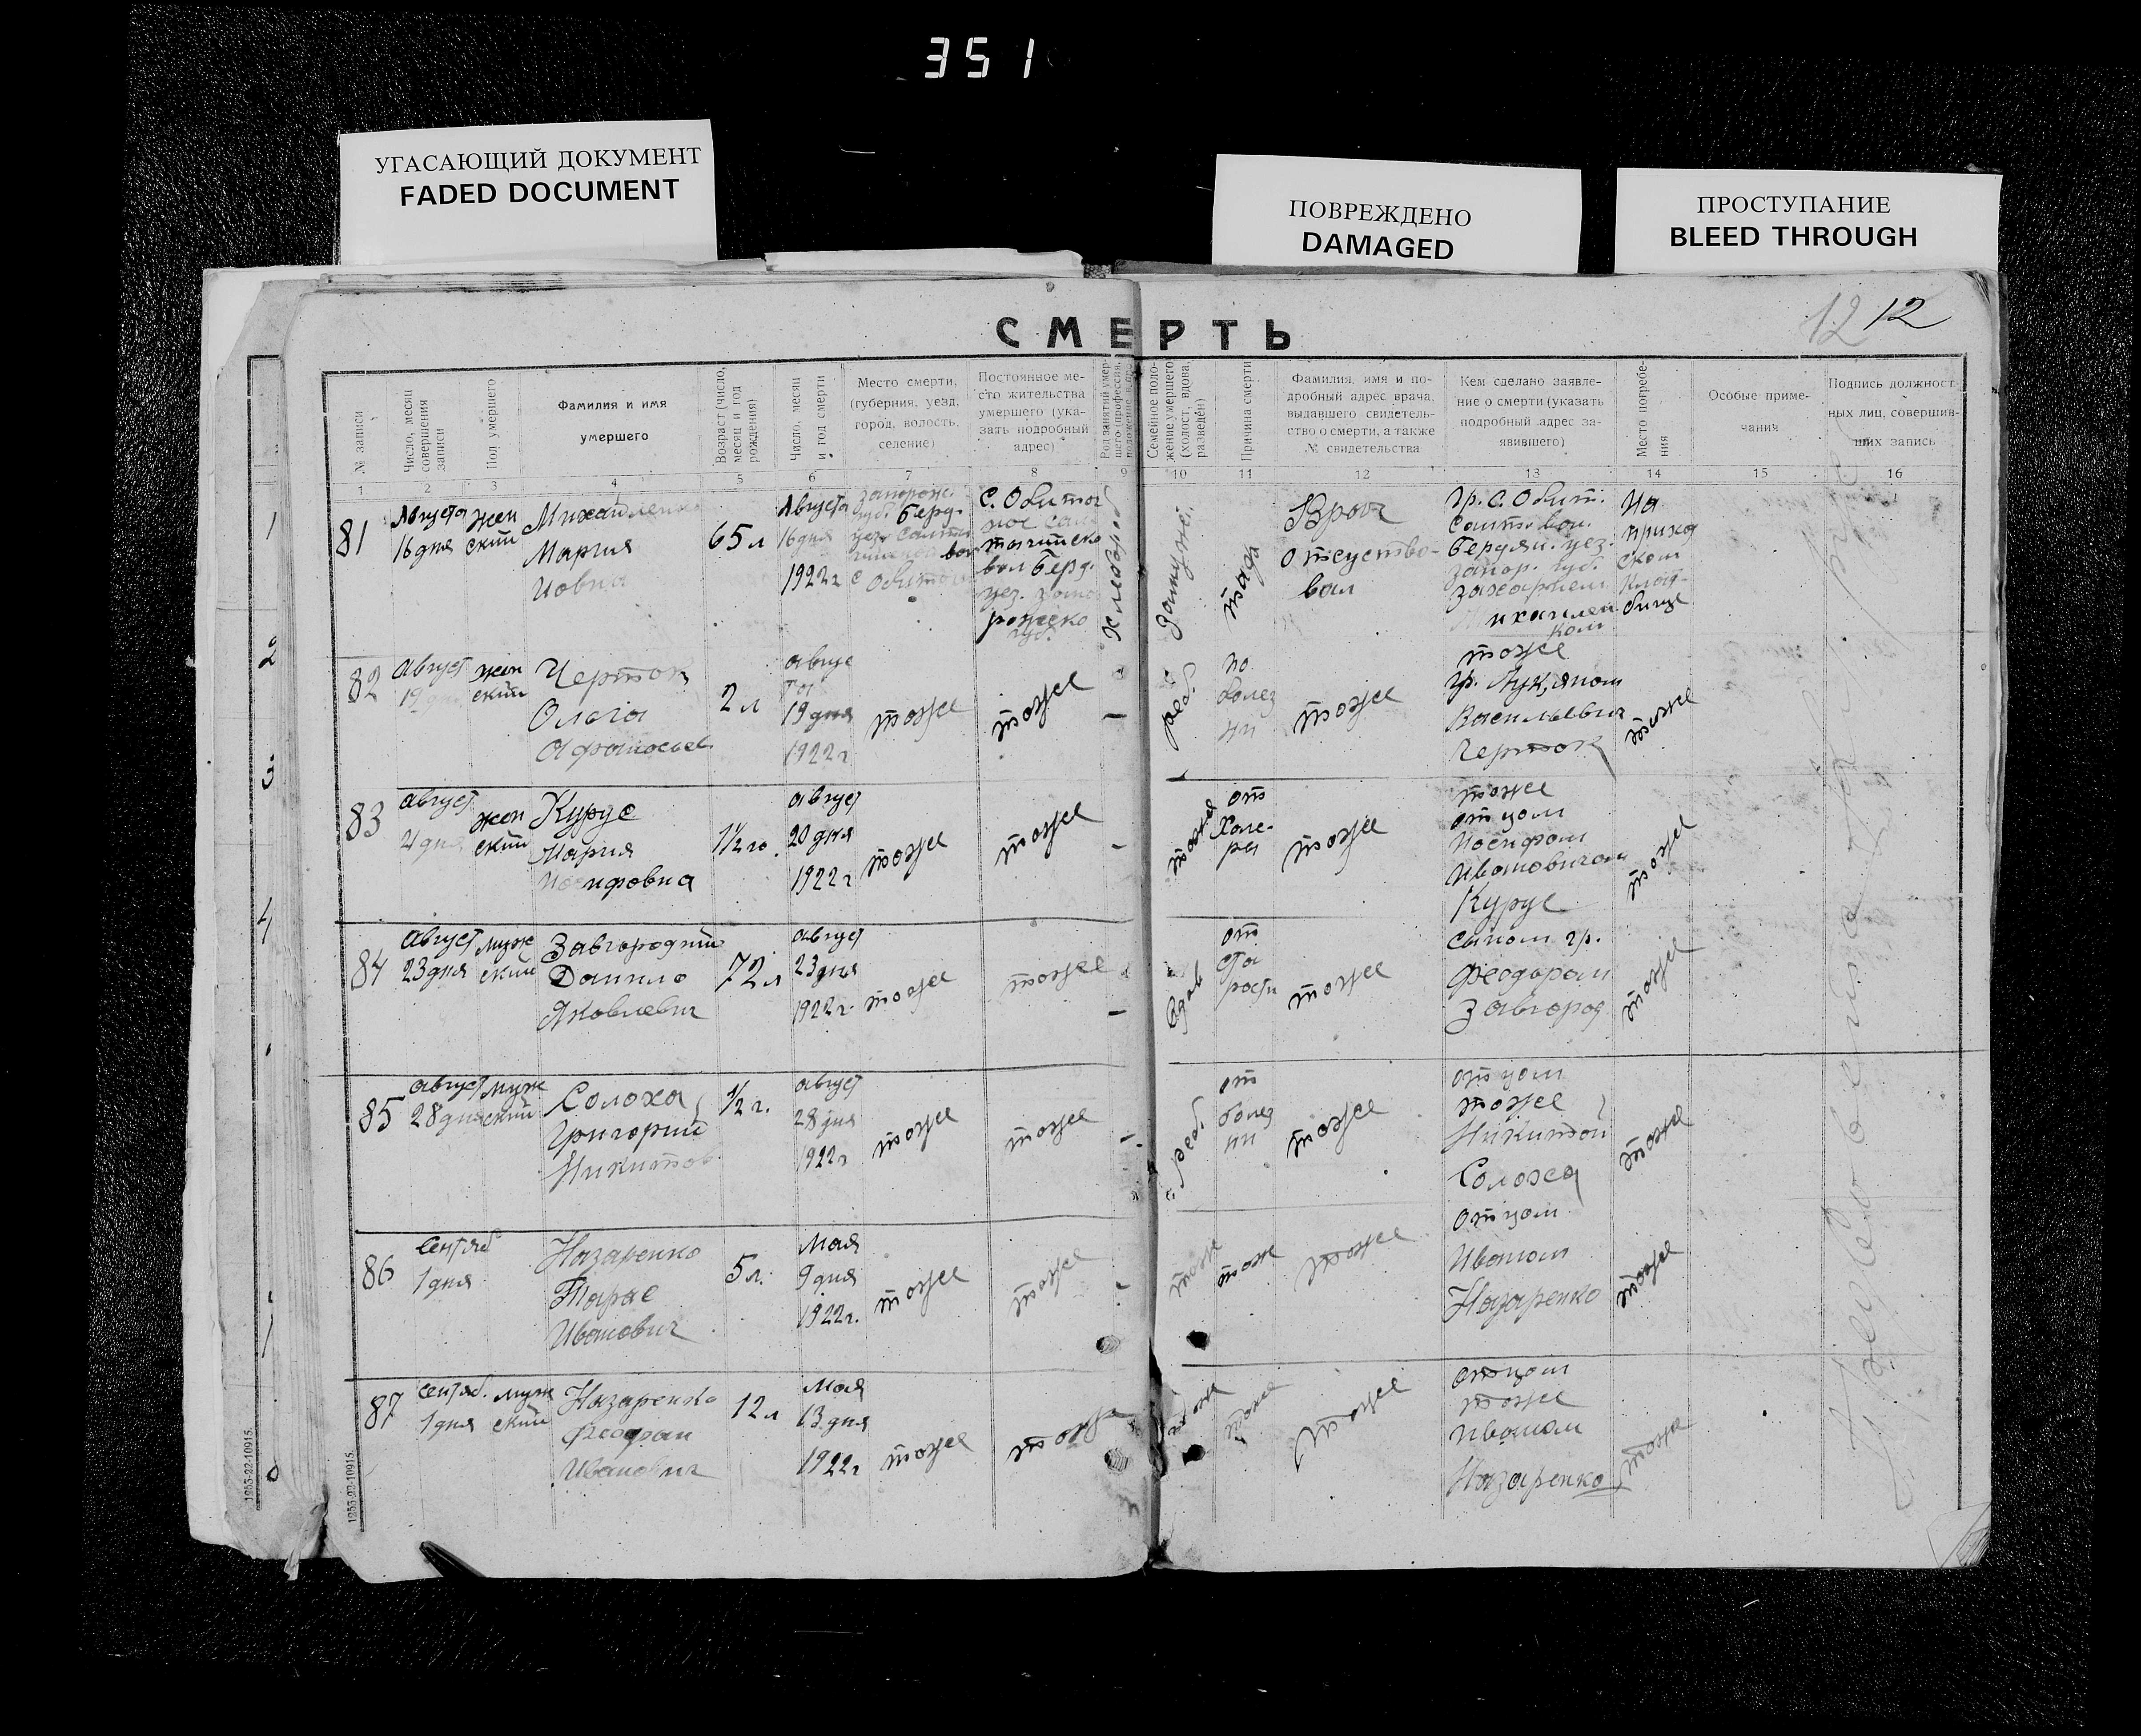 351
УГАСАЮЩИЙ ДОКУМЕНТ
FADED DOCUMENT
ПОВРЕЖДЕНО
DAMAGED
ПРОСТУПАНИЕ
BLEED THROUGH
12 12
СМЕРТЬ
№ записи
Число, месяц
совершения
записи
Пол умершего
Фамилия и имя
умершего
Возраст (число,
месяц и год
рождения)
Число, месяц
и год смерти
Место смерти,
(губерния, уезд,
город, волость,
селение)
Постоянное ме-
сто жительства
умершего (ука-
зать подробный
адрес)
Род занятий умер-
шего (профессия,
Семейное поло-
жение умершего
(холост, вдова,
разведен)
Причина смерти
Фамилия, имя и по-
дробный адрес врача,
выдавшего свидетель-
ство о смерти, а также
№ свидетельства
Кем сделано заявле-
ние о смерти (указать
подробный адрес за-
явившего)
Место погребе-
ния
Особые приме-
чания
Подпись должност-
ных лиц, совершив-
ших запись
1 2 3 4 5 6 7 8 9 10 11 12 13 14 15 16
81
Августа
16 дня
жен
ский
Михайленко
Мария
Иовна
65 л
Августа
16 дня
1922 г
запорож.
губ. Берд.
уез.
вол
с Обиточ
С. Обиточ
ное
вол Берд.
уез. запо
рожско
губ.
Хлебороб
Замужей.
Врач
отсуство-
вал
гр. С. Обит.
вол.
Бердян. уез.
Запор. губ.
Захарием
ихайлен
ком
На
приход
ском
клад-
бище
82
август
19 дня
жен
ский
Черток
Олога
Афанасьев
2 л
авгус
та
19 дня
1922 г
тоже
тоже
реб
по
болез
ни
тоже
тоже
гр. Лукяном
Васильевич
Черток
тоже
83
август
21 дня
жен
ский
Курус
Мария
Иосифовна
1½ го.
август
20 дня
1922 г
тоже
тоже
тоже
от
Холе-
ра
тоже
тоже
отцом
Иосифом
Ивановичом
Курус
тоже
84
август
23 дня
муж
ский
Завгородний
Данило
Яковлевич
72 л
август
23 дня
1922 г.
тоже
тоже
вдов
от
ста
рости
тоже
сыном гр.
Феодором
Завгород
тоже
85
август
28 дня
муж
ский
Солоха
Григорий
Никитов
½ г.
август
28 дня
1922 г
тоже
тоже
реб
от
болез
ни
тоже
отцом
тоже
Никитой
Солоха
тоже
86
Сентяб
1 дня
Назаренко
Тарас
Иванович
5 л.
Мая
9 дня
1922 г.
тоже
тоже
тоже
тоже
тоже
отцом
Иваном
Назаренко
тоже
87
сентяб.
1 дня
муж
ский
Назаренко
Феофан
Иванович
12 л
Мая
13 дня
1922 г
тоже
тоже
тоже
тоже
тоже
отцом
тоже
Иваном
Назаренко
тоже
1255-22-10915.
1255-22-10915.